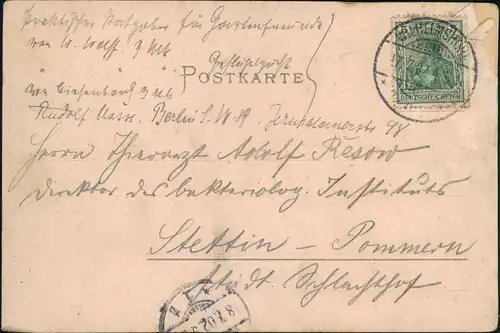 praktischer Ratgeber für Gartenfreunde
von W. Wolff. 3 Mk
Geflügelzucht
POSTKARTE
3 Mk
Rudolf Mosse. Berlin S. W. 19. Jerusalemerstr 48
Herrn Thierarzt Adolf Resow
Direktor des bakteriolog. Instituts
Stettin - Pommern
Städt. Schlachthof
DEUTSCHES REICH